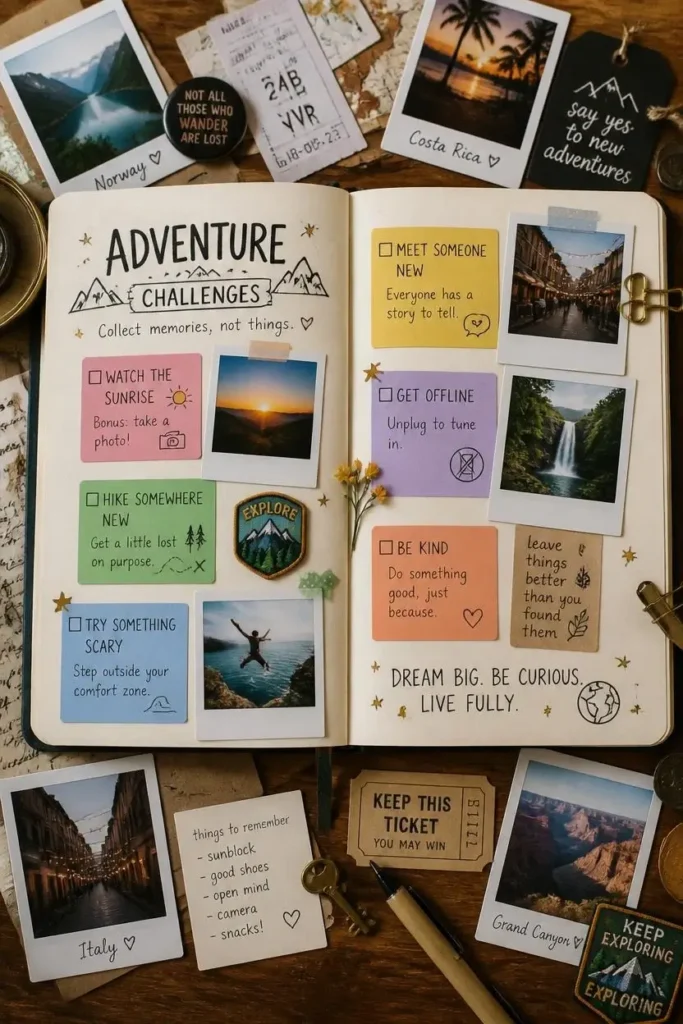 Norway ♡
NOT ALL
THOSE WHO
WANDER
ARE LOST
2AB
YVR
Costa Rica ♡
say yes
to new
adventures
ADVENTURE
CHALLENGES
Collect memories, not things. ♡
☐ WATCH THE
SUNRISE
Bonus: take a
photo!
☐ HIKE SOMEWHERE
NEW
Get a little lost
on purpose.
EXPLORE
☐ TRY SOMETHING
SCARY
Step outside your
comfort zone.
☐ MEET SOMEONE
NEW
Everyone has a
story to tell.
☐ GET OFFLINE
Unplug to tune
in.
☐ BE KIND
Do something
good, just
because.
leave
things
better
than you
found
them
DREAM BIG. BE CURIOUS.
LIVE FULLY.
Italy ♡
things to remember
- sunblock
- good shoes
- open mind
- camera
- snacks!
KEEP THIS
TICKET
YOU MAY WIN
Grand Canyon ♡
KEEP
EXPLORING
EXPLORING